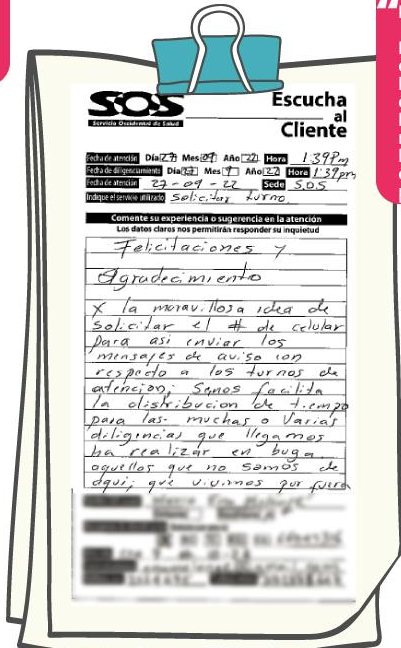 SOS
Servicio Occidental de Salud
Escucha
al
Cliente
Fecha de atención Día 27 Mes 09 Año 22 Hora 1:39 Pm
Fecha de diligenciamiento Día 27 Mes 9 Año 22 Hora 1:39 pm
Fecha de atención 27-09-22 Sede S.O.S
Indique el servicio utilizado Solicitar turno
Comente su experiencia o sugerencia en la atención
Los datos claros nos permitirán responder su inquietud
Felicitaciones y
Agradecimiento
X la maravillosa idea de
solicitar el # de celular
para asi enviar los
mensajes de aviso con
respecto a los turnos de
atencion; Senos facilita
la distribucion de tiempo
para las muchas o varias
diligencias que llegamos
ha realizar en buga
aquellos que no somos de
aqui, que vivimos por fuera